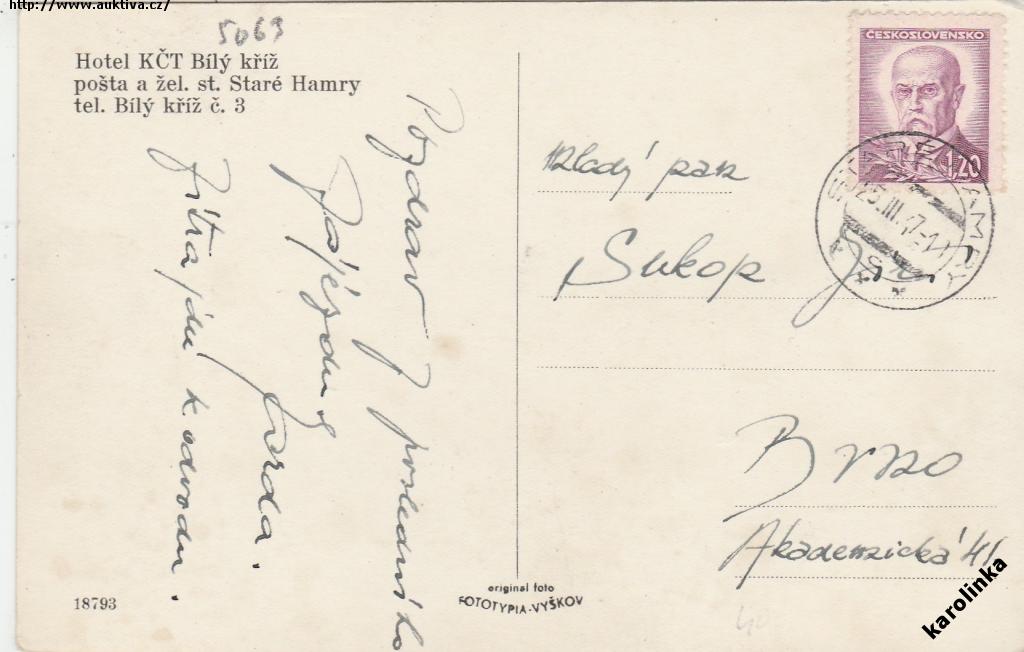 http://www.auktiva.cz/
5063
Hotel KČT Bílý kříž
pošta a žel. st. Staré Hamry
tel. Bílý kříž č. 3
Pozdrav z posledního
zájezdu
Jarda.
Zítra jdu k odvodu.
18793
original foto
FOTOTYPIA-VYŠKOV
ČESKOSLOVENSKO
1,20
25.III.47
Mladý pan
Sukop
Brno
Akademická 41
karolinka